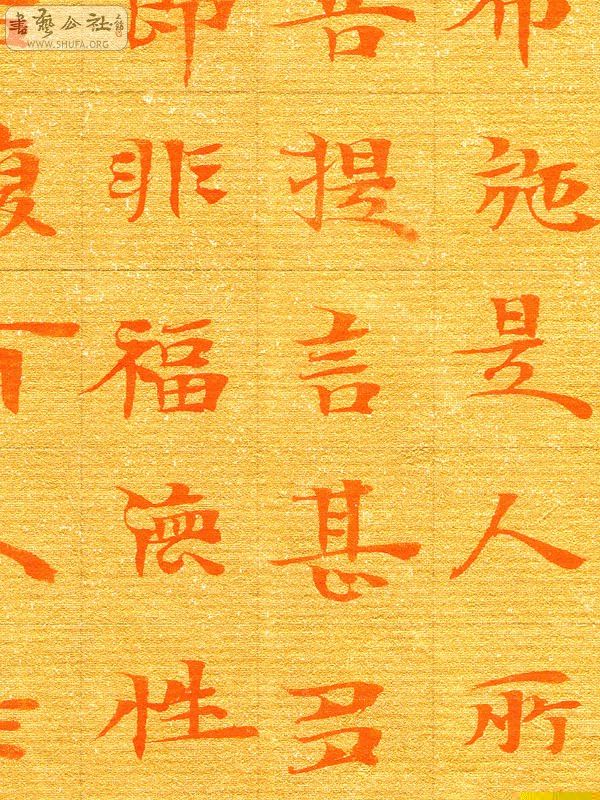 書藝公社
WWW.SHUFA.ORG
布施是人所
菩提言甚多
即非福德性
復